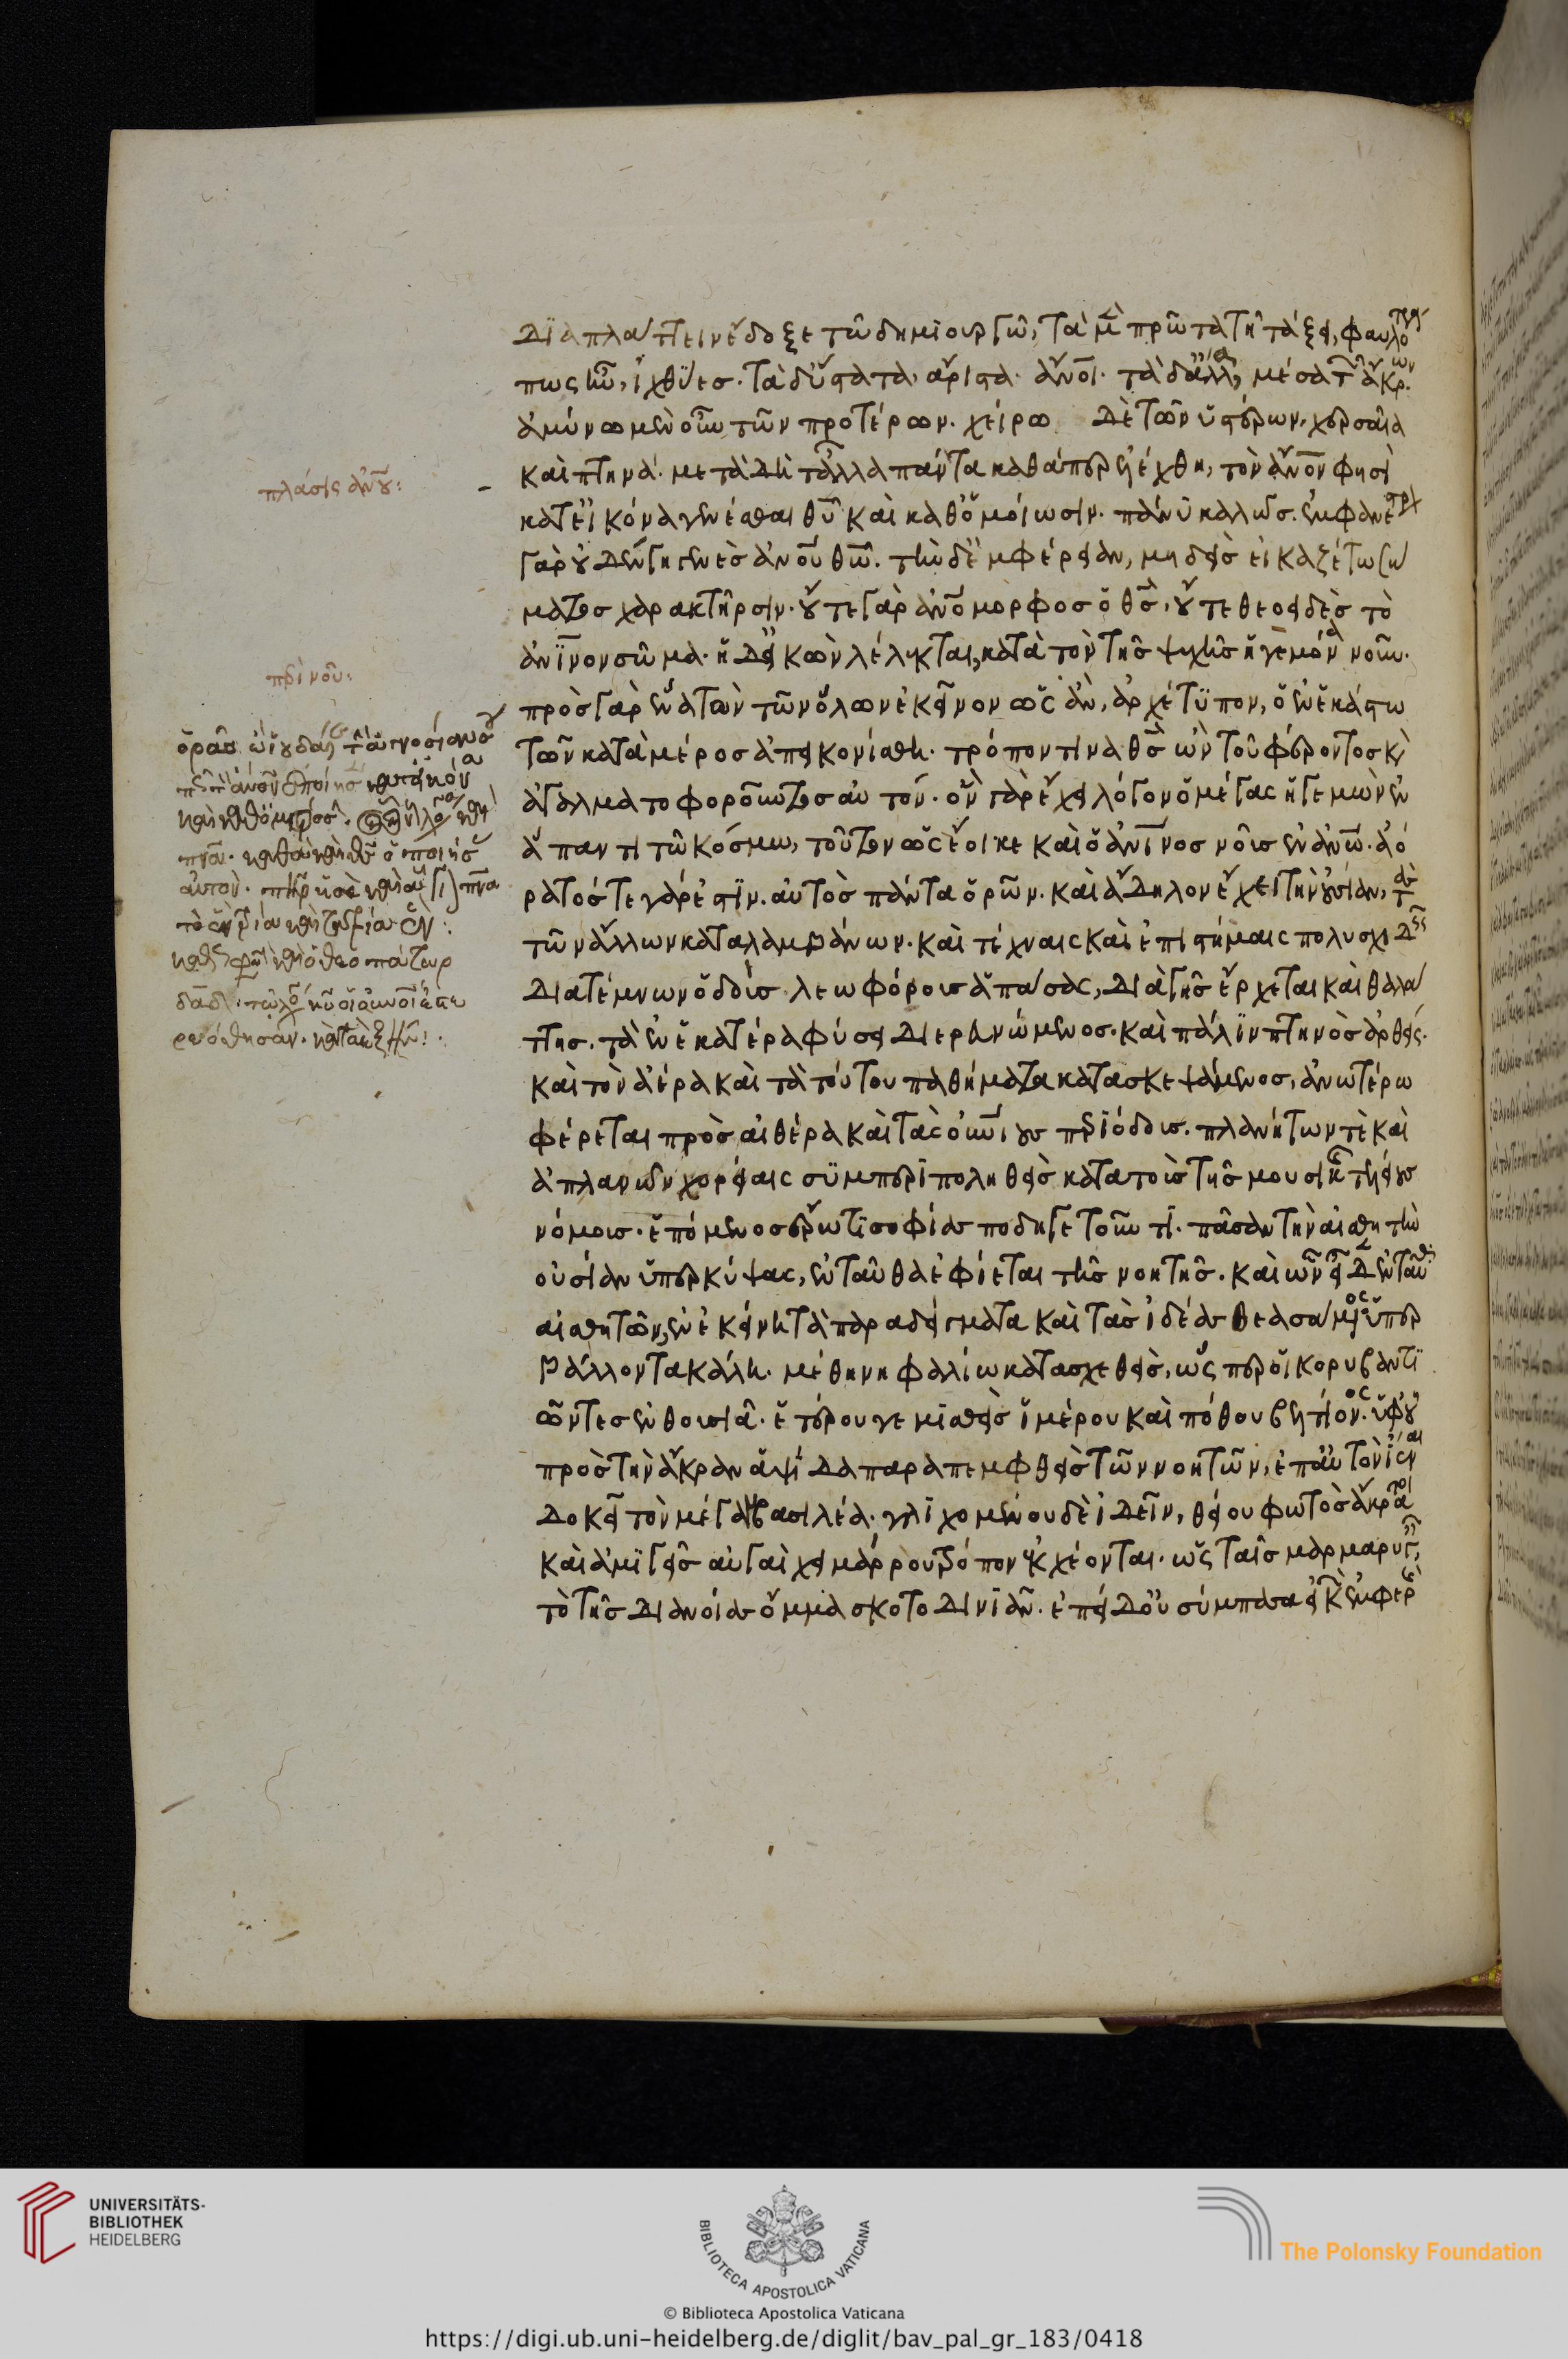 πλάσις ἀνου:
περὶ νοῦ:
διαπλάττειν ἔδοξε τῶ δημιουργῶ, τὰ μὲ πρῶτα τῆ τάξει, φαυλότερά
πως ἦν, ἰχθύες. τὰ δ' ὕστατα, ἄριστα. ἄνοι. τὰ δ' ἄλλα, μέσα τῶν ἄκρων.
ἀμείνω μὲν οὖν τῶν προτέρων. χείρω δὲ τῶν ὑστέρων, χερσαῖα
καὶ πτηνά. μετὰ δὴ τἄλλα πάντα καθάπερ ἐλέχθη, τὸν ἄνον φησὶ
κατ' εἰκόνα γενέσθαι θυ καὶ καθ' ὁμοίωσιν. πάνυ καλῶς. ἐμφερέστερον
γὰρ οὐδὲν γηγενὲς ἀνου θω. τὴν δ' ἐμφέρειαν, μηδεὶς εἰκαζέτω σώ
ματος χαρακτῆρσιν. οὔτε γὰρ ἀνόμορφος ὁ θς, οὔτε θεοειδὲς τὸ
ἀνινον σῶμα. ἡ δ' εἰκὼν λέλεκται, κατὰ τὸν τῆς ψυχῆς ἡγεμόνα νοῦν.
πρὸς γὰρ ἕνα τὸν τῶν ὅλων ἐκεῖνον ὡς ἂν, ἀρχέτυπον, ὁ ἐν ἑκάστω
τῶν κατὰ μέρος ἀπεικονίσθη. τρόπον τινὰ θς ὢν τοῦ φέροντος καὶ
ἀγαλματοφοροῦντος αὐτόν. ὃν γὰρ ἔχει λόγον ὁ μέγας ἡγεμὼν ἐν
ἅπαντι τῶ κόσμω, τοῦτον ὡς ἔοικε καὶ ὁ ἀνινος νοῦς ἐν ἀνω. ἀό
ρατός τε γάρ ἐστιν. αὐτὸς πάντα ὁρῶν. καὶ ἄδηλον ἔχει τὴν οὐσίαν, τὰς
τῶν ἄλλων καταλαμβάνων. καὶ τέχναις καὶ ἐπιστήμαις πολυσχιδεῖς
διατέμνων ὁδοὺς λεωφόρους ἁπάσας, διὰ γῆς ἔρχεται καὶ θαλά
ττης. τὰ ἐν ἑκατέρα φύσει διερευνώμενος. καὶ πάλιν πτηνὸς ἀρθείς.
καὶ τὸν ἀέρα καὶ τὰ τούτου παθήματα κατασκεψάμενος, ἀνωτέρω
φέρεται πρὸς αἰθέρα καὶ τὰς οὐνίους περιόδους. πλανήτων τὲ καὶ
ἀπλανῶν χορείαις συμπεριποληθεὶς κατὰ τοὺς τῆς μουσικῆς τελείους
νόμους. ἑπόμενος ἔρωτι σοφίας ποδηγετοῦντι. πᾶσαν τὴν αἰσθητὴν
οὐσίαν ὑπερκύψας, ἐνταῦθα ἐφίεται τῆς νοητῆς. καὶ ὧν εἶδεν ἐνταῦθα
αἰσθητῶν, ἐν ἐκείνη τὰ παραδείγματα καὶ τὰς ἰδέας θεασάμενος ὑπερ
βάλλοντα κάλλη. μέθη νηφαλίω κατασχεθεὶς, ὥσπερ οἱ κορυβαντι
ῶντες ἐνθουσιᾶ. ἑτέρου γεμισθεὶς ἱμέρου καὶ πόθου βελτίονος. ὑφ' οὗ
πρὸς τὴν ἄκραν ἁψῖδα παραπεμφθεὶς τῶν νοητῶν, ἐπ' αὐτὸν ἰέναι
δοκεῖ τὸν μέγαν βασιλέα. γλιχομένου δὲ ἰδεῖν, θείου φωτὸς ἄκρατοι
καὶ ἀμιγεῖς αὐγαὶ χειμάρρου τρόπον ἐκχέονται. ὡς ταῖς μαρμαρυγαῖς
τὸ τῆς διανοίας ὄμμα σκοτοδινιᾶν. ἐπεὶ δ' οὐ σύμπασα εἰκὼν ἐμφερὴς
UNIVERSITÄTS-
BIBLIOTHEK
HEIDELBERG
BIBLIOTECA APOSTOLICA VATICANA
The Polonsky Foundation
© Biblioteca Apostolica Vaticana
https://digi.ub.uni-heidelberg.de/diglit/bav_pal_gr_183/0418